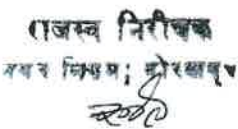 राजस्व निरीक्षक
नगर निगम; गोरखपुर